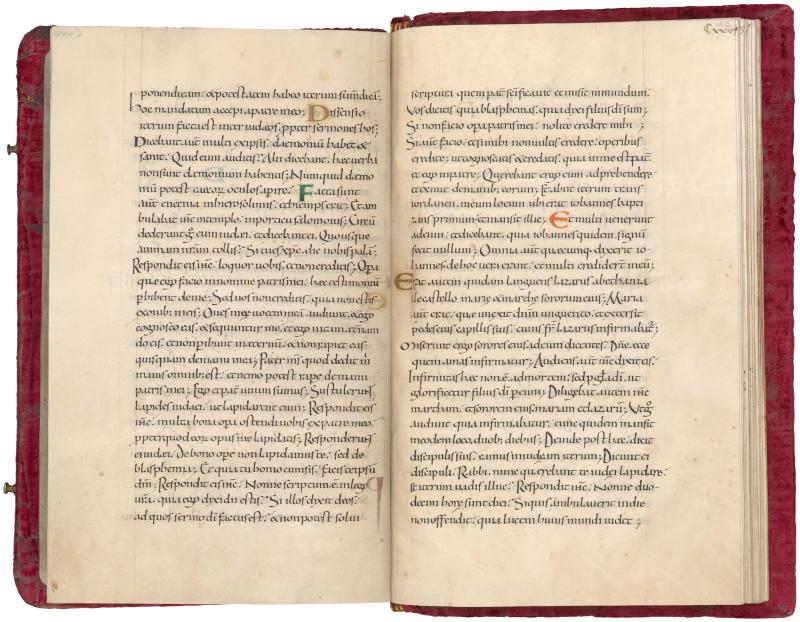 ponendi eam. & potestatem habeo iterum sumendi eā;
hoc mandatum accepi a patre meo; Dissensio
iterum facta est inter iudaeos. ppter sermones hos;
Dicebant aut̄ multi ex ipsis. daemoniū habet &
sanit. Quid eum auditis? Alii dicebant. haec verba
non sunt daemonium habentis; Numquid daemo
niū potest caecor oculos apire? Facta sunt
aut̄ encenia in hierosolimis. & hiemps erat; Et am
bulabat ihs in templo. in porticu salomonis; Circū
dederunt g̊ eum iudei. & dicebant ei. Quousque
animam nr̄am tollis? Si tu es xp̄c. dic nobis palā;
Respondit eis ihc. loquor uobis. & non creditis; Opa
quae ego facio in nomine patris mei. haec testimoniū
phibent de me; Sed uos non creditis. quia non estis
ex ouib; meis; Oues meę uocem meā audiunt. & ego
cognosco eas. & sequuntur me. et ego uitam &nam
do eis. & non pibunt in aeternū. & non rapiet eas
quisquam de manu mea; Pater ms̄ quod dedit m̄
maius omnib; est. et nemo potest rape de manu
patris mei; Ego et pat̄ unum sumus; Sustulerunt
lapides iudaei. ut lapidarent eum; Respondit eis
ihc. multa bona opa ostendi uobis ex patre meo.
ppter quod eor̄ opus me lapidatis; Responderunt
ei iudaei. De bono ope non lapidamus te. sed de
blasphemia; Et quia tu homo cum sis. facis te ipsū
dm̄; Respondit eis ihc. Nonne scriptum ē in lege
ur̄a. quia ego dixi dii estis? Si illos dixit deos.
ad quos sermo dī factus est. & non potest solui
scriptura quem pat̄ sc̄ificauit et misit in mundum.
Vos dicitis quia blasphemas. quia dixi filius dī sum;
Si non facio opa patris mei. nolite credere mihi;
Si aut̄ facio. et si mihi non uultis credere. operibus
credite; ut cognoscatis & credatis. quia in me est pat̄.
et ego in patre; Querebant ergo eum adprehendere
et exiuit de manib; eorum; & abiit iterum trans
iordanen. in eum locum ubi erat iohannes bapti
zans primum. et mansit illic; Et multi uenerunt
ad eum. et dicebant. quia iohannes quidem signū
fecit nullum; Omnia aut̄ quaecumq; dixit io
hannes de hoc uera erant. et multi crediderūt in eū;
Erat autem quidam languens lazarus a bethania
de castello marię & marthę sororum eius; Maria
aut̄ erat. quę unxit dn̄m unguento. et extersit
pedes eius capillis suis. cuius fr̄ lazarus infirmabat̄;
Miserunt ergo sorores eius. ad eum dicentes. Dn̄e. ecce
quem amas infirmatur; Audiens aut̄ ihc dixit eis.
Infirmitas haec non ē ad mortem. sed p gła dī. ut
glorificetur filius dī p eum; Diligebat autem ihc
martham. et sororem eius mariam et lazarū; Vt g̊
audiuit quia infirmabatur. tunc quidem mansit
in eodem loco. duob; dieb;; Deinde post haec. dicit
discipulis suis. eamus in iudeam iterum; Dicunt ei
discipuli. Rabbi. nunc querebant te iudei lapidare.
et iterum uadis illuc? Respondit ihc. Nonne duo
decim horę sunt diei? Si quis ambulauerit in die
non offendit. quia lucem huius mundi uidet;